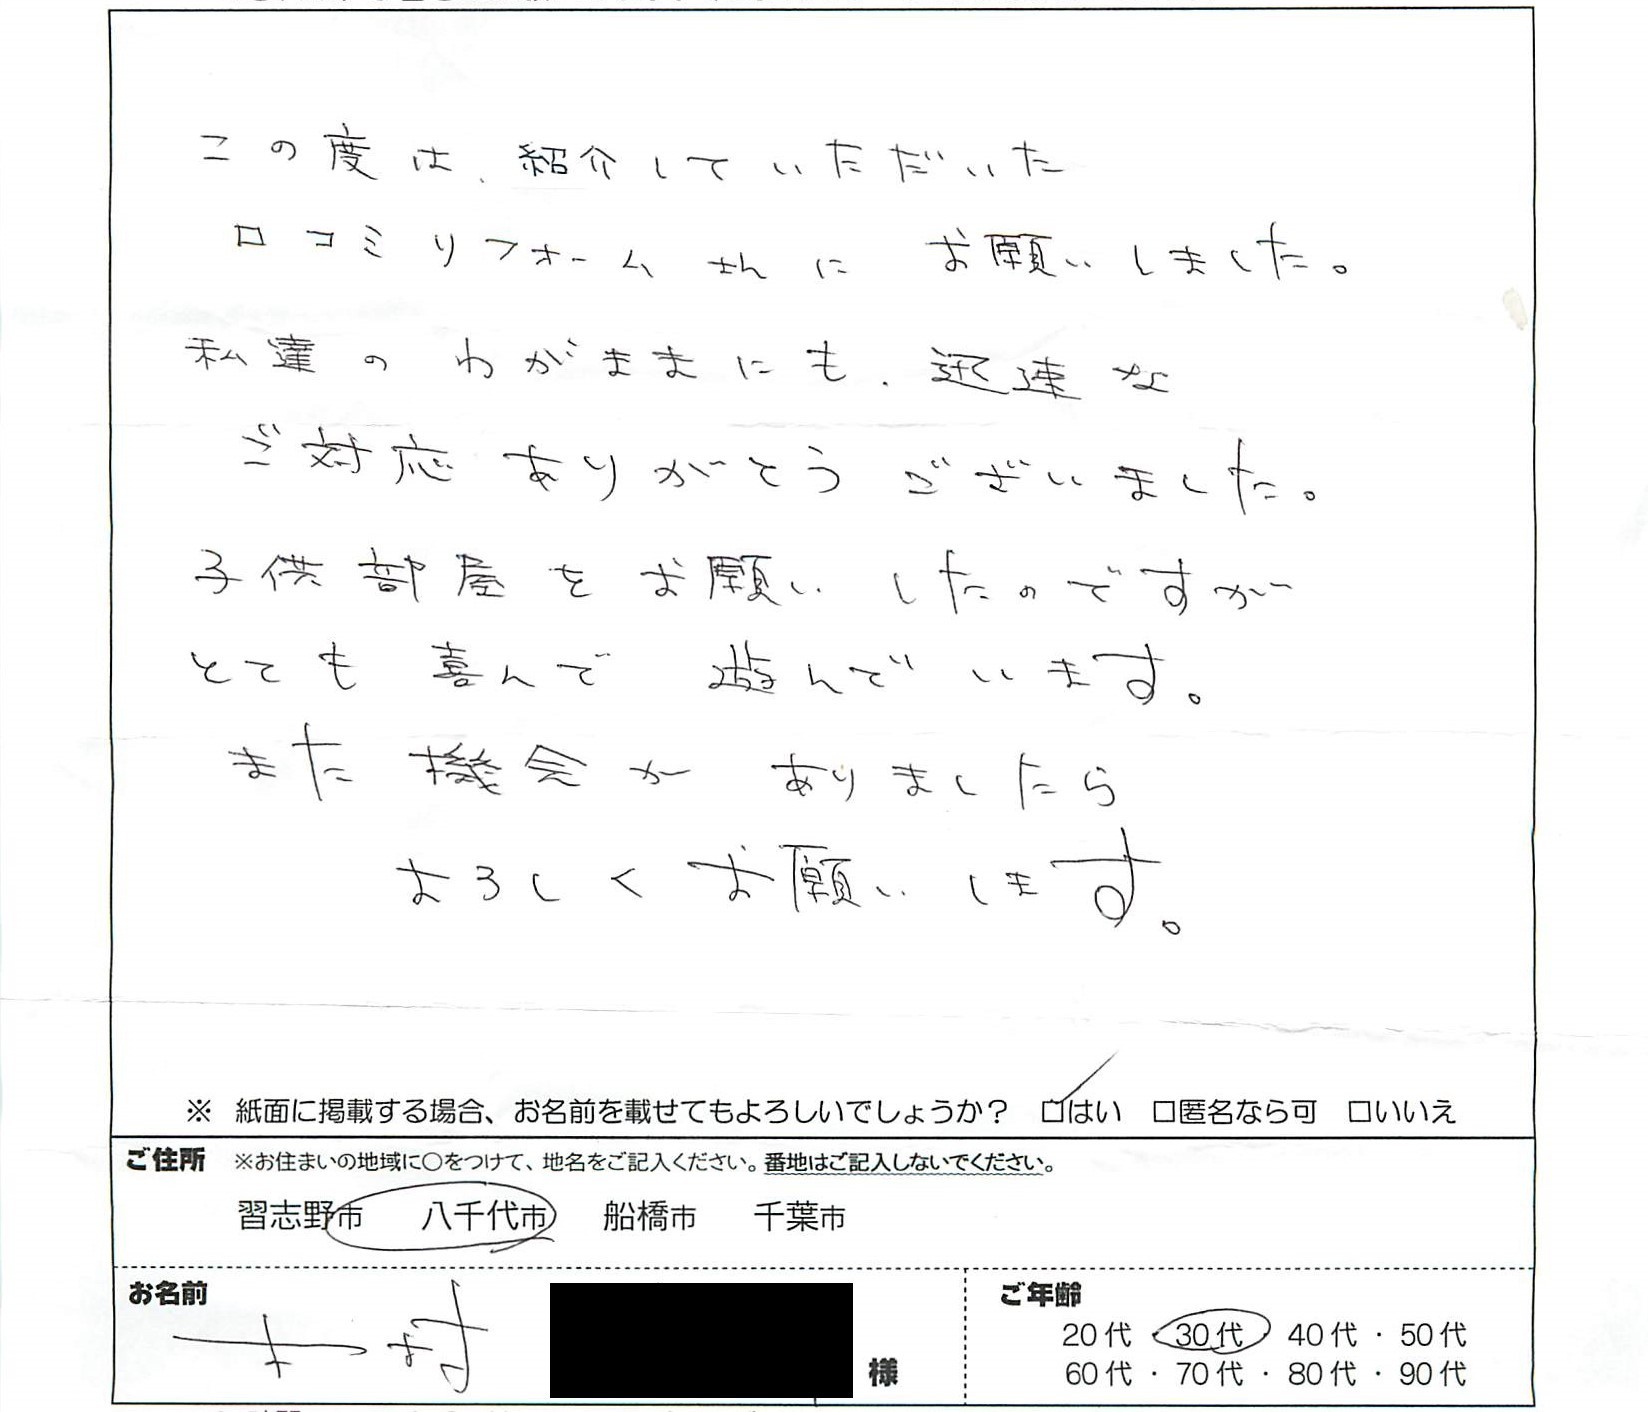 この度は、紹介していただいた
口コミリフォームさんに お願いしました。
私達のわがままにも、迅速な
ご対応ありがとうございました。
子供部屋をお願いしたのですが
とても喜んで 遊んでいます。
また機会が ありましたら
よろしくお願いします。
※ 紙面に掲載する場合、お名前を載せてもよろしいでしょうか？ □はい □匿名なら可 □いいえ
ご住所 ※お住まいの地域に○をつけて、地名をご記入ください。番地はご記入しないでください。
習志野市 八千代市 船橋市 千葉市
お名前
村
様
ご年齢
20代・30代・40代・50代
60代・70代・80代・90代